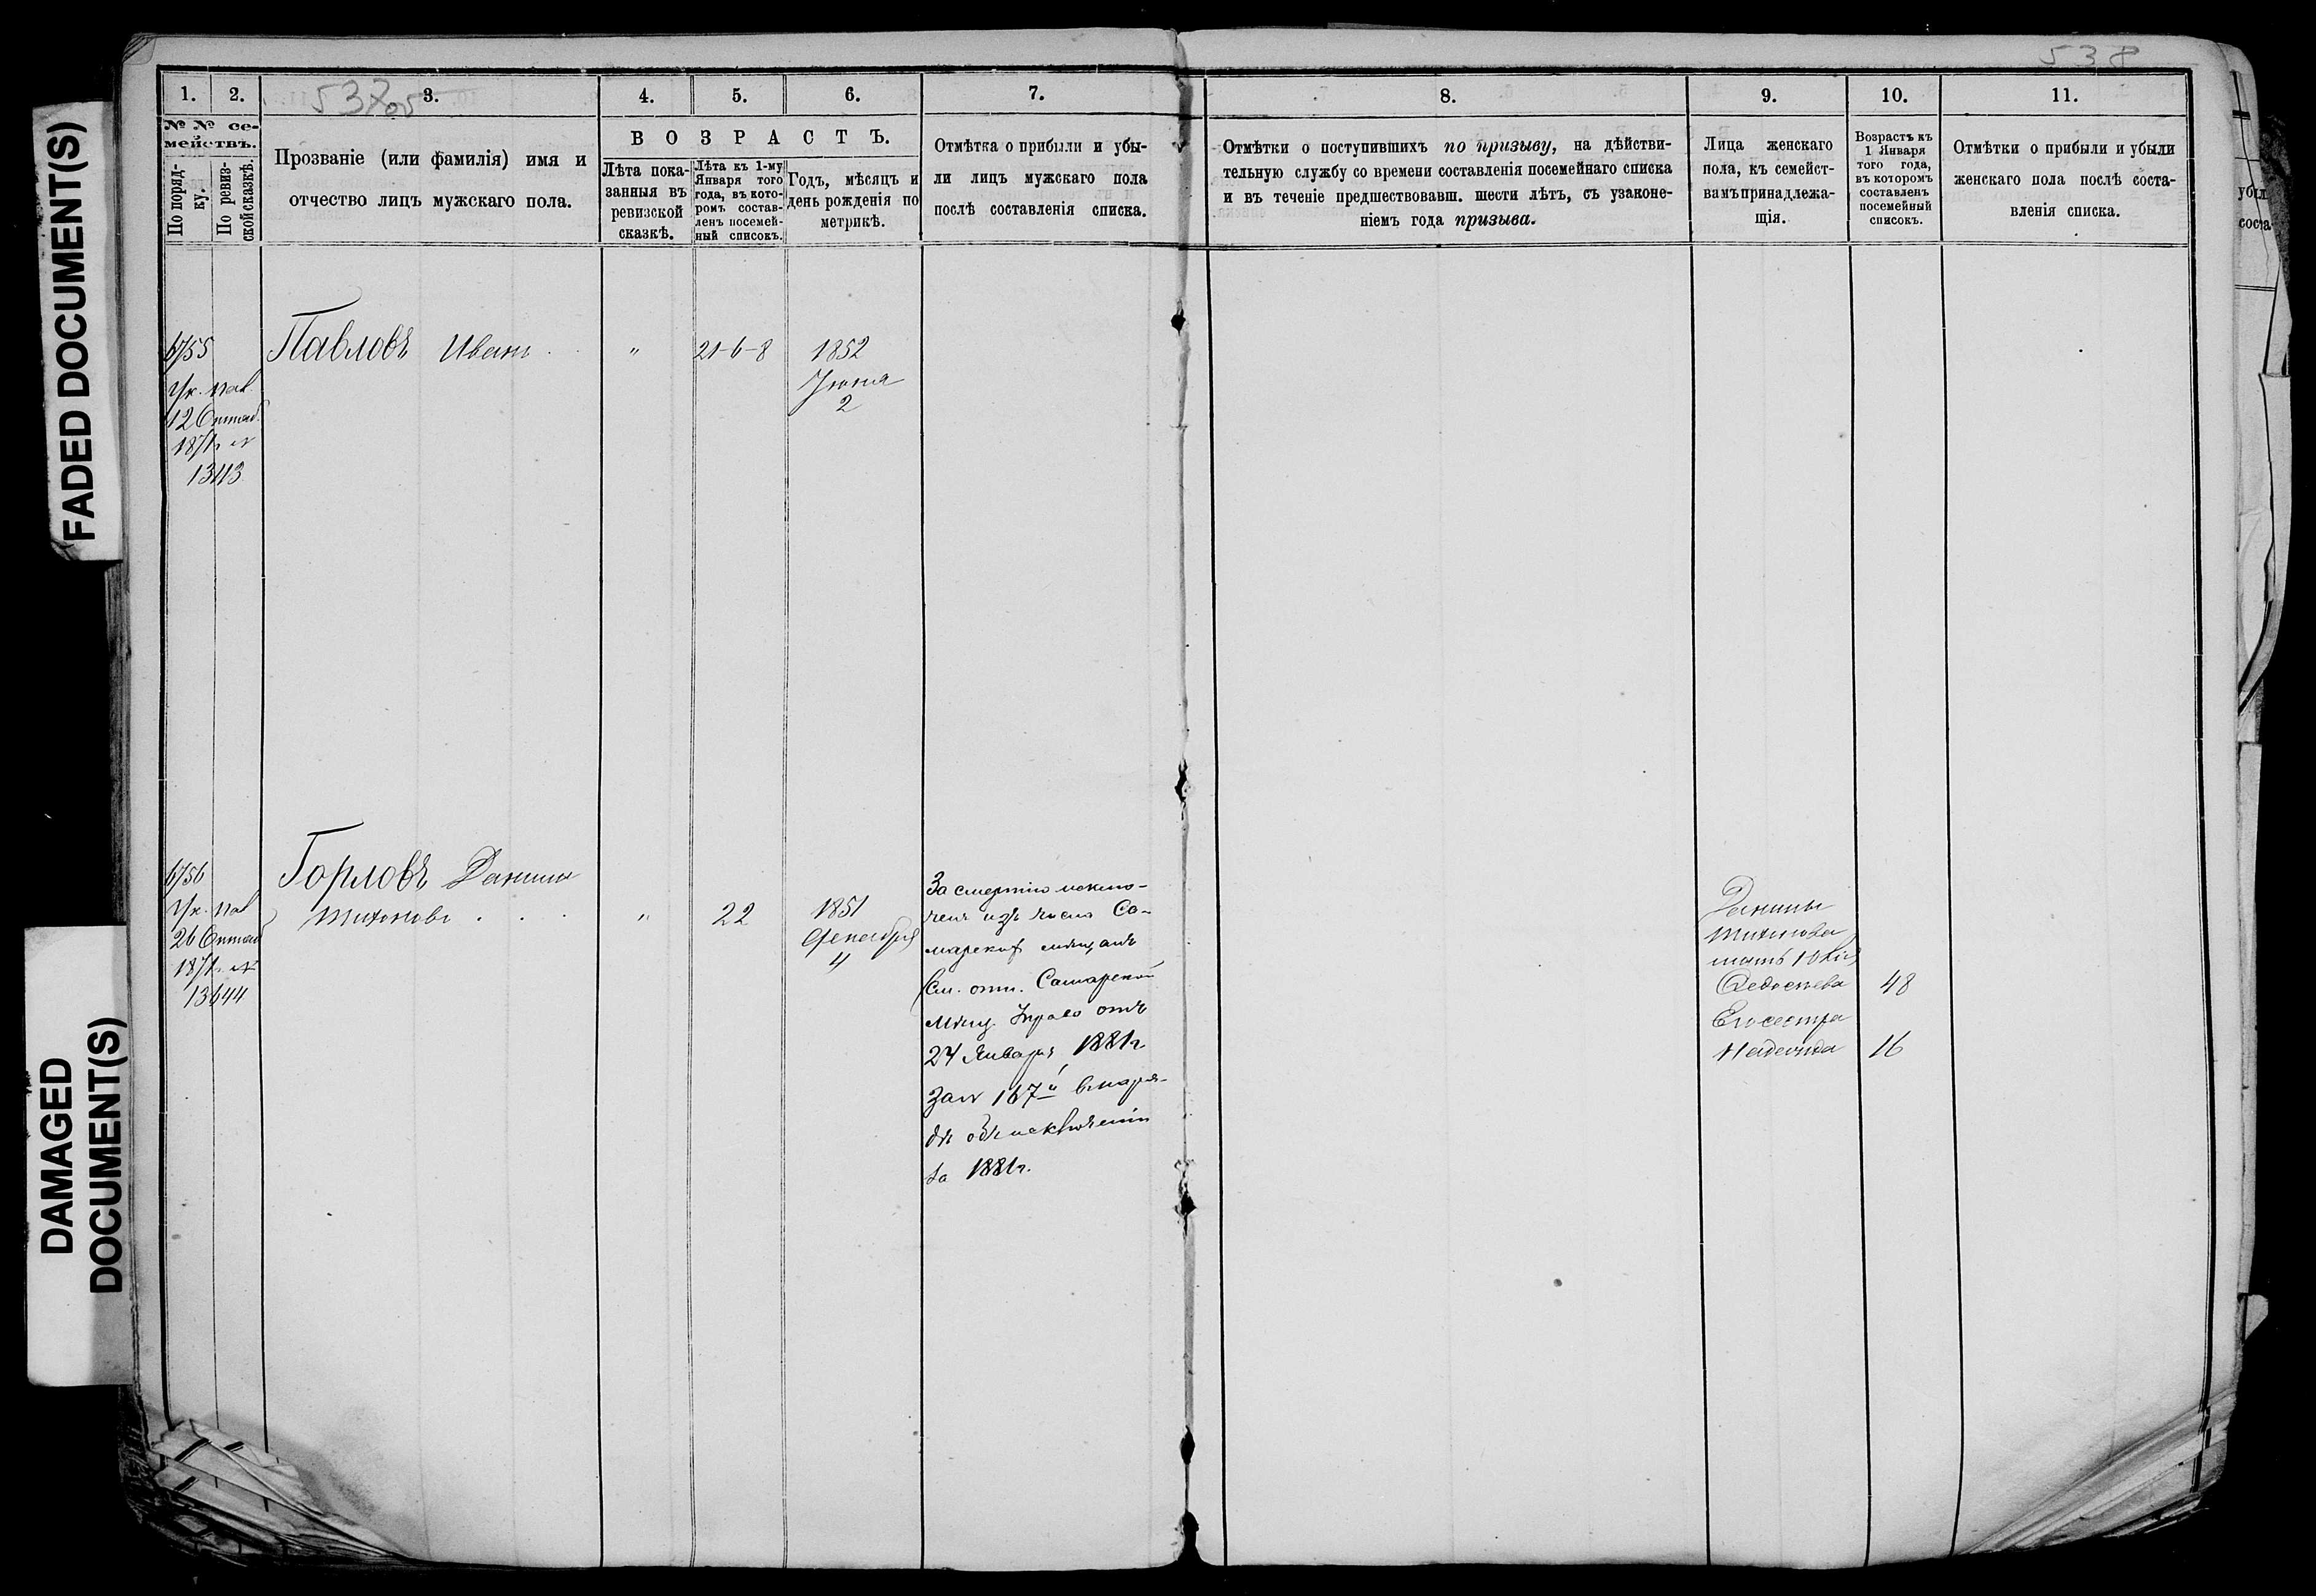 FADED DOCUMENT(S)
DAMAGED
DOCUMENT(S)
538
1. 2. 3. 4. 5. 6. 7. 8. 9. 10. 11.
№ № се-
мействъ.
По поряд-
ку.
По ревиз-
ской сказкѣ.
Прозваніе (или фамилія) имя и
отчество лицъ мужскаго пола.
ВОЗРАСТЪ.
Лѣта пока-
занныя въ
ревизской
сказкѣ.
Лѣта къ 1-му
Января того
года, въ кото-
ромъ состав-
ленъ посемей-
ный списокъ.
Годъ, мѣсяцъ и
день рожденія по
метрикѣ.
Отмѣтка о прибыли и убы-
ли лицъ мужскаго пола
послѣ составленія списка.
Отмѣтки о поступившихъ по призыву, на дѣйстви-
тельную службу со времени составленія посемейнаго списка
и въ теченіе предшествовавш. шести лѣтъ, съ узаконе-
ніемъ года призыва.
Лица женскаго
пола, къ семейст-
вамъ принадлежа-
щія.
Возрастъ къ
1 Января
того года,
въ которомъ
составленъ
посемейный
списокъ.
Отмѣтки о прибыли и убыли
женскаго пола послѣ соста-
вленія списка.
6755 Павловъ Иванъ " 21-6-8 1852
Ук. пал.
Іюня
2
12 Октяб.
1871 г. №
13113
6756 Горловъ Данила
Ук. пал
Тихоновъ " 22 1851
Декабря
4
26 Октяб
1871 г. №
13644
За смертію исклю-
ченъ изъ числа Са-
марских мѣщанъ
См. отн. Самарской
Мѣщ. Управ отъ
24 Января 1881 г.
за № 167й въ наря-
дѣ объ исключеніи
за 1881 г.
Данилы
Тихонова
мать
Федосѣева 48
Его сестра
Надежда 16
убыл
соста